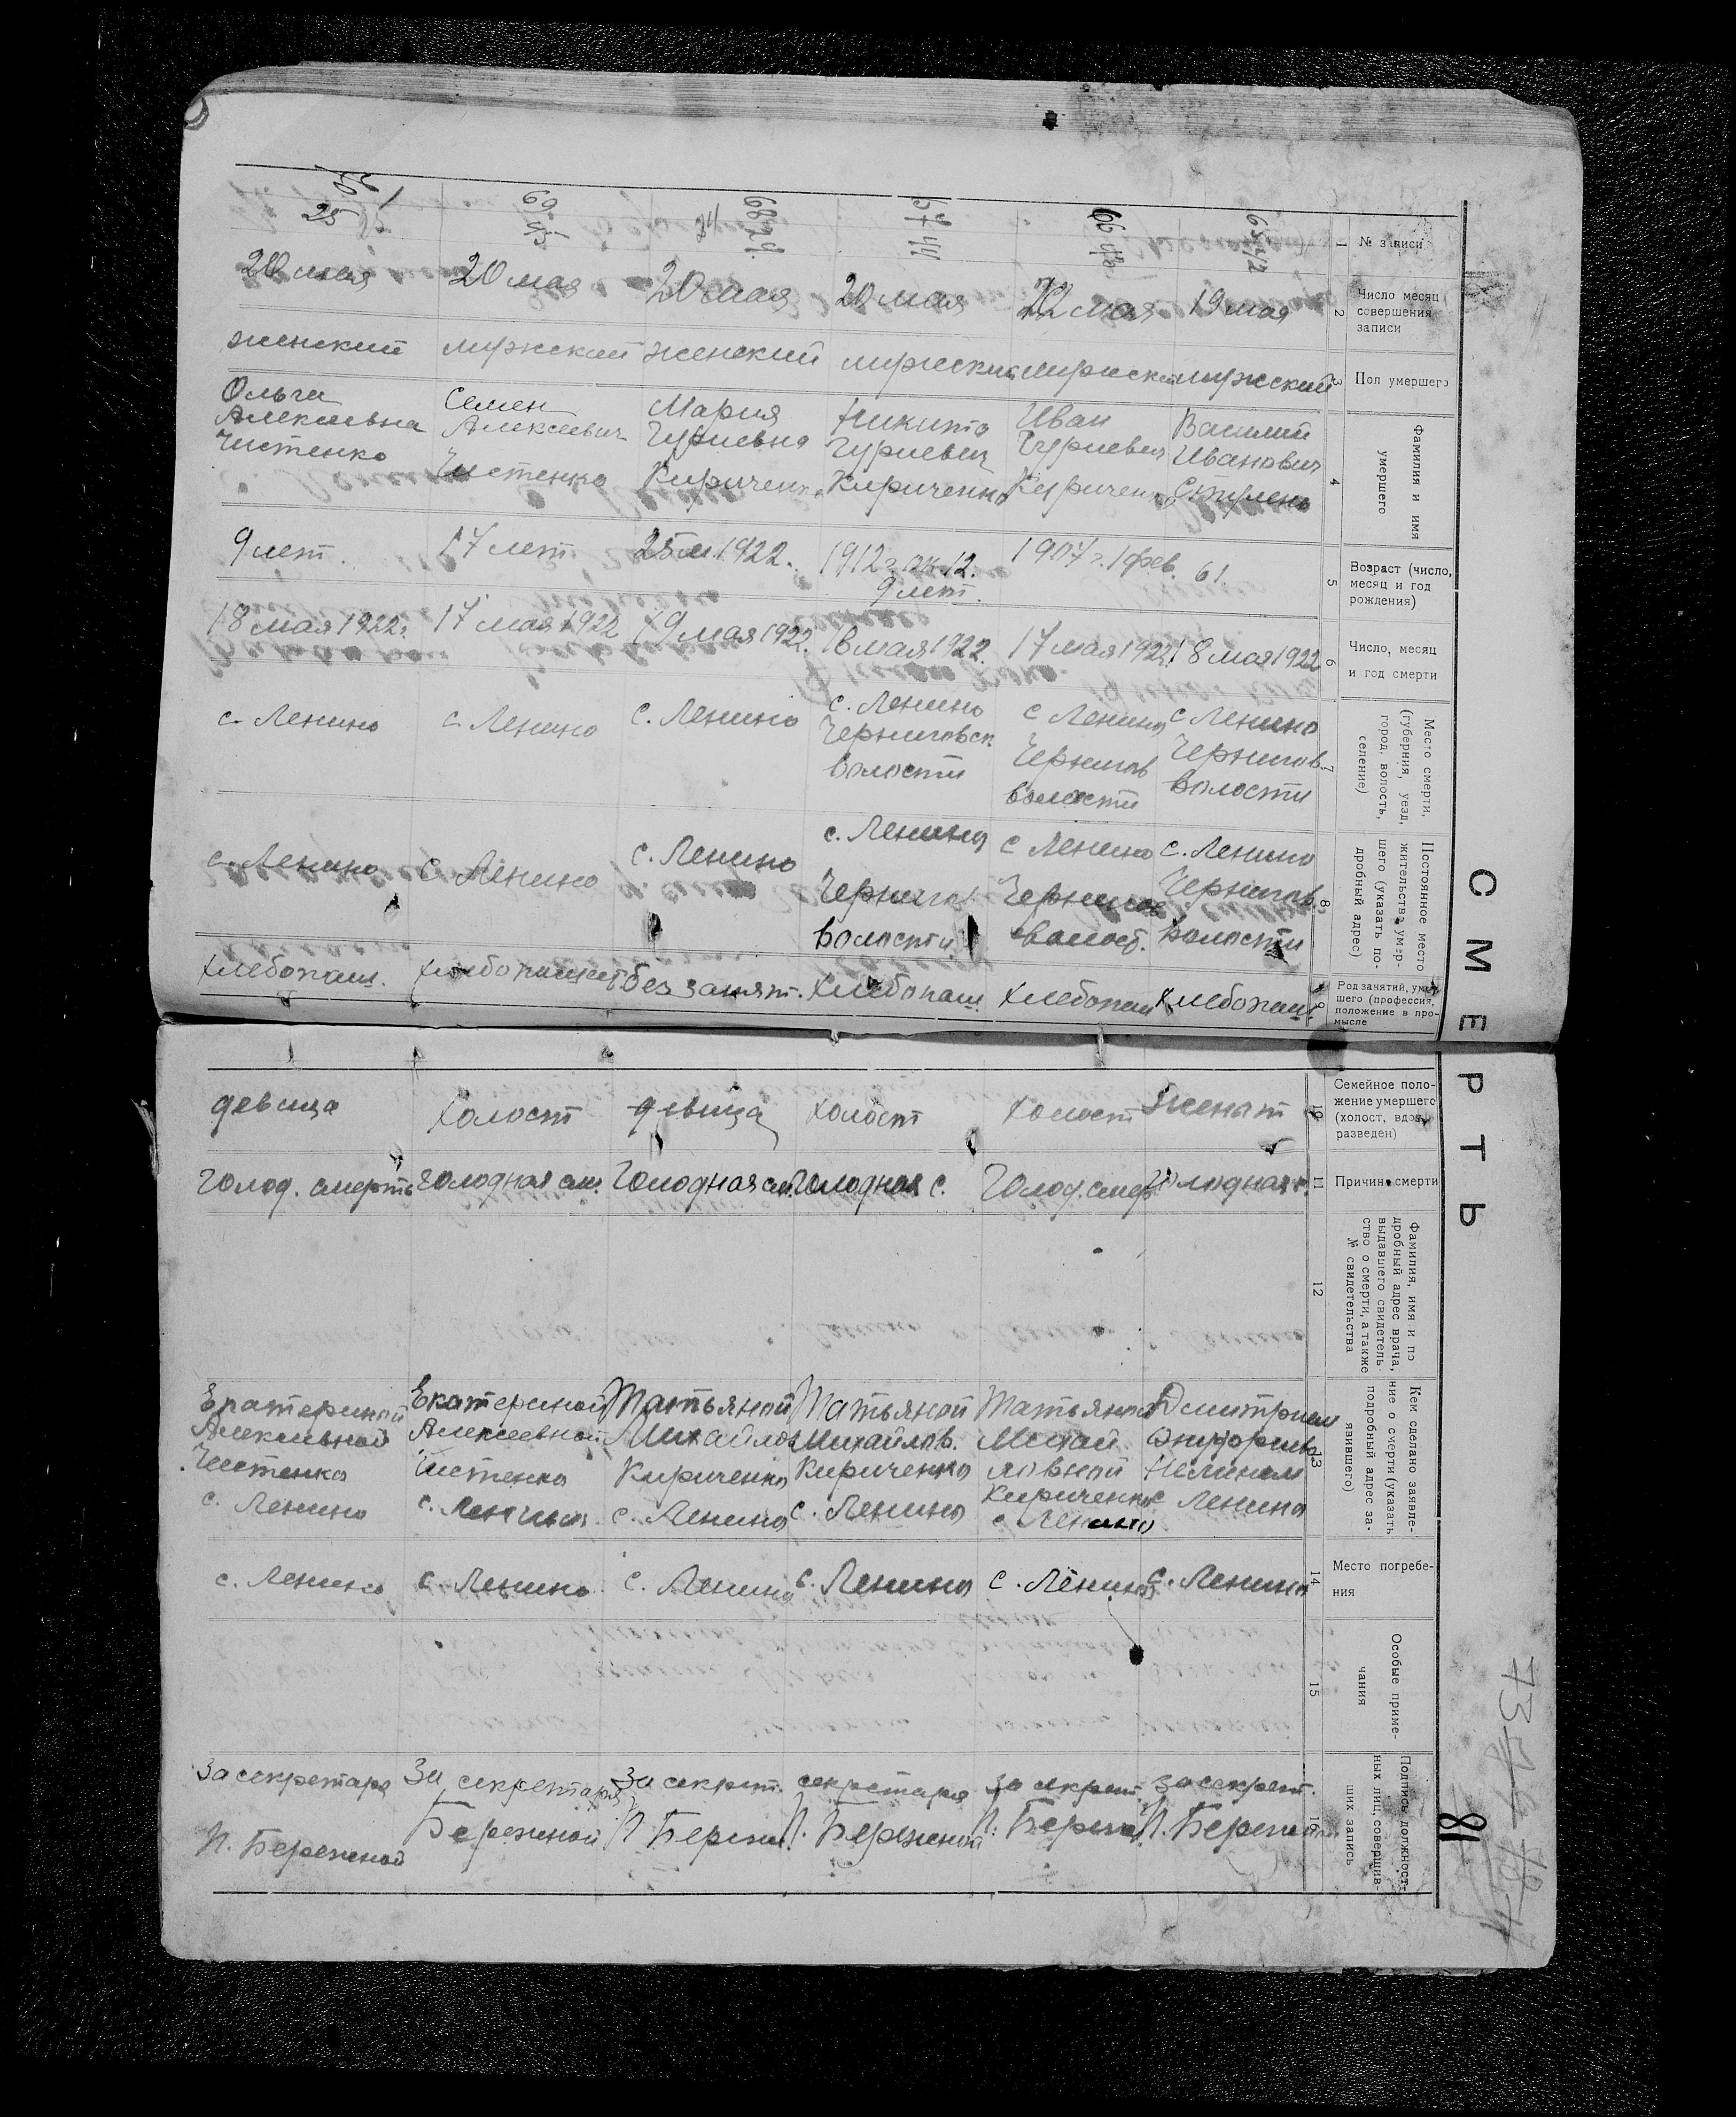 СМЕРТЬ
81
№ записи
1
Число месяц
совершения
записи
2
Пол умершего
3
Фамилия и имя
умершего
4
Возраст (число,
месяц и год
рождения)
5
Число, месяц
и год смерти
6
Место смерти,
(губерния, уезд,
город, волость,
селение)
7
Постоянное место
жительства умер-
шего (указать по-
дробный адрес)
8
Род занятий, умер-
шего (профессия,
положение в про-
мысле
9
Семейное поло-
жение умершего
(холост, вдов,
разведен)
10
Причина смерти
11
Фамилия, имя и по
дробный адрес врача,
выдавшего свидетель
ство о смерти, а также
№ свидетельства
12
Кем сделано заявле-
ние о смерти (указать
подробный адрес за-
явившего)
13
Место погребе-
ния
14
Особые приме-
чания
15
Подпись должност-
ных лиц, совершив-
ших запись
16
19 мая
мужский
Василий
Иванович
61.
18 мая 1922
с Ленино
Чернигов
волости
с. Ленино
Чернигов
волости
хлебопаш
женат
голодная с.
Дмитрием
с Ленино
с. Ленино
за секрет.
П. Бережн
22 мая
мужский
Иван
Гуриевич
Кириченко
1907 г. 1 фев.
17 мая 1922
с Ленино
Чернигов
волости
с Ленино
Чернигов
волост.
хлебопаш
холост
Голод. смер
Татьяной
Михай
ловной
Кириченко
с Ленино
с. Ленино
за секрет.
П. Бережн
20 мая
мужский
Никита
Гуриевич
Кириченко
1912 г. ок. 12.
9 лет.
18 мая 1922.
с. Ленино
Черниговск
волости
с. Ленино
Чернигов
волости
хлебопаш.
холост
Голодная с.
Татьяной
Михайлов.
Кириченко
с. Ленино
с. Ленино
секретаря
П. Бережной
20 мая
женский
Мария
Гуриевна
Кириченко
25 м. 1922.
19 мая 1922.
с. Ленино
с. Ленино
без занят.
девица
Голодная см.
Татьяной
Михайлов
Кириченко
с. Ленино
с. Ленино
за секрет.
П Бережн
69
20 мая
мужский
Семен
Алексеевич
Чистенко
17 лет.
17 мая 1922
с. Ленино
с Ленино
хлебопашест
холост
голодная см.
Екатериной
Алексеевной
Чистенко
с. Ленино
с. Ленино
За секретаря
Бережной
25
20 мая
женский
Ольга
Алексеевна
Чистенко
9 лет.
18 мая 1922.
с. Ленино
с. Ленино
хлебопаш.
девица
Голод. смерть
Екатериной
Алексеевной
Чистенко
с. Ленино
с. Ленино
За секретаря
П. Бережной